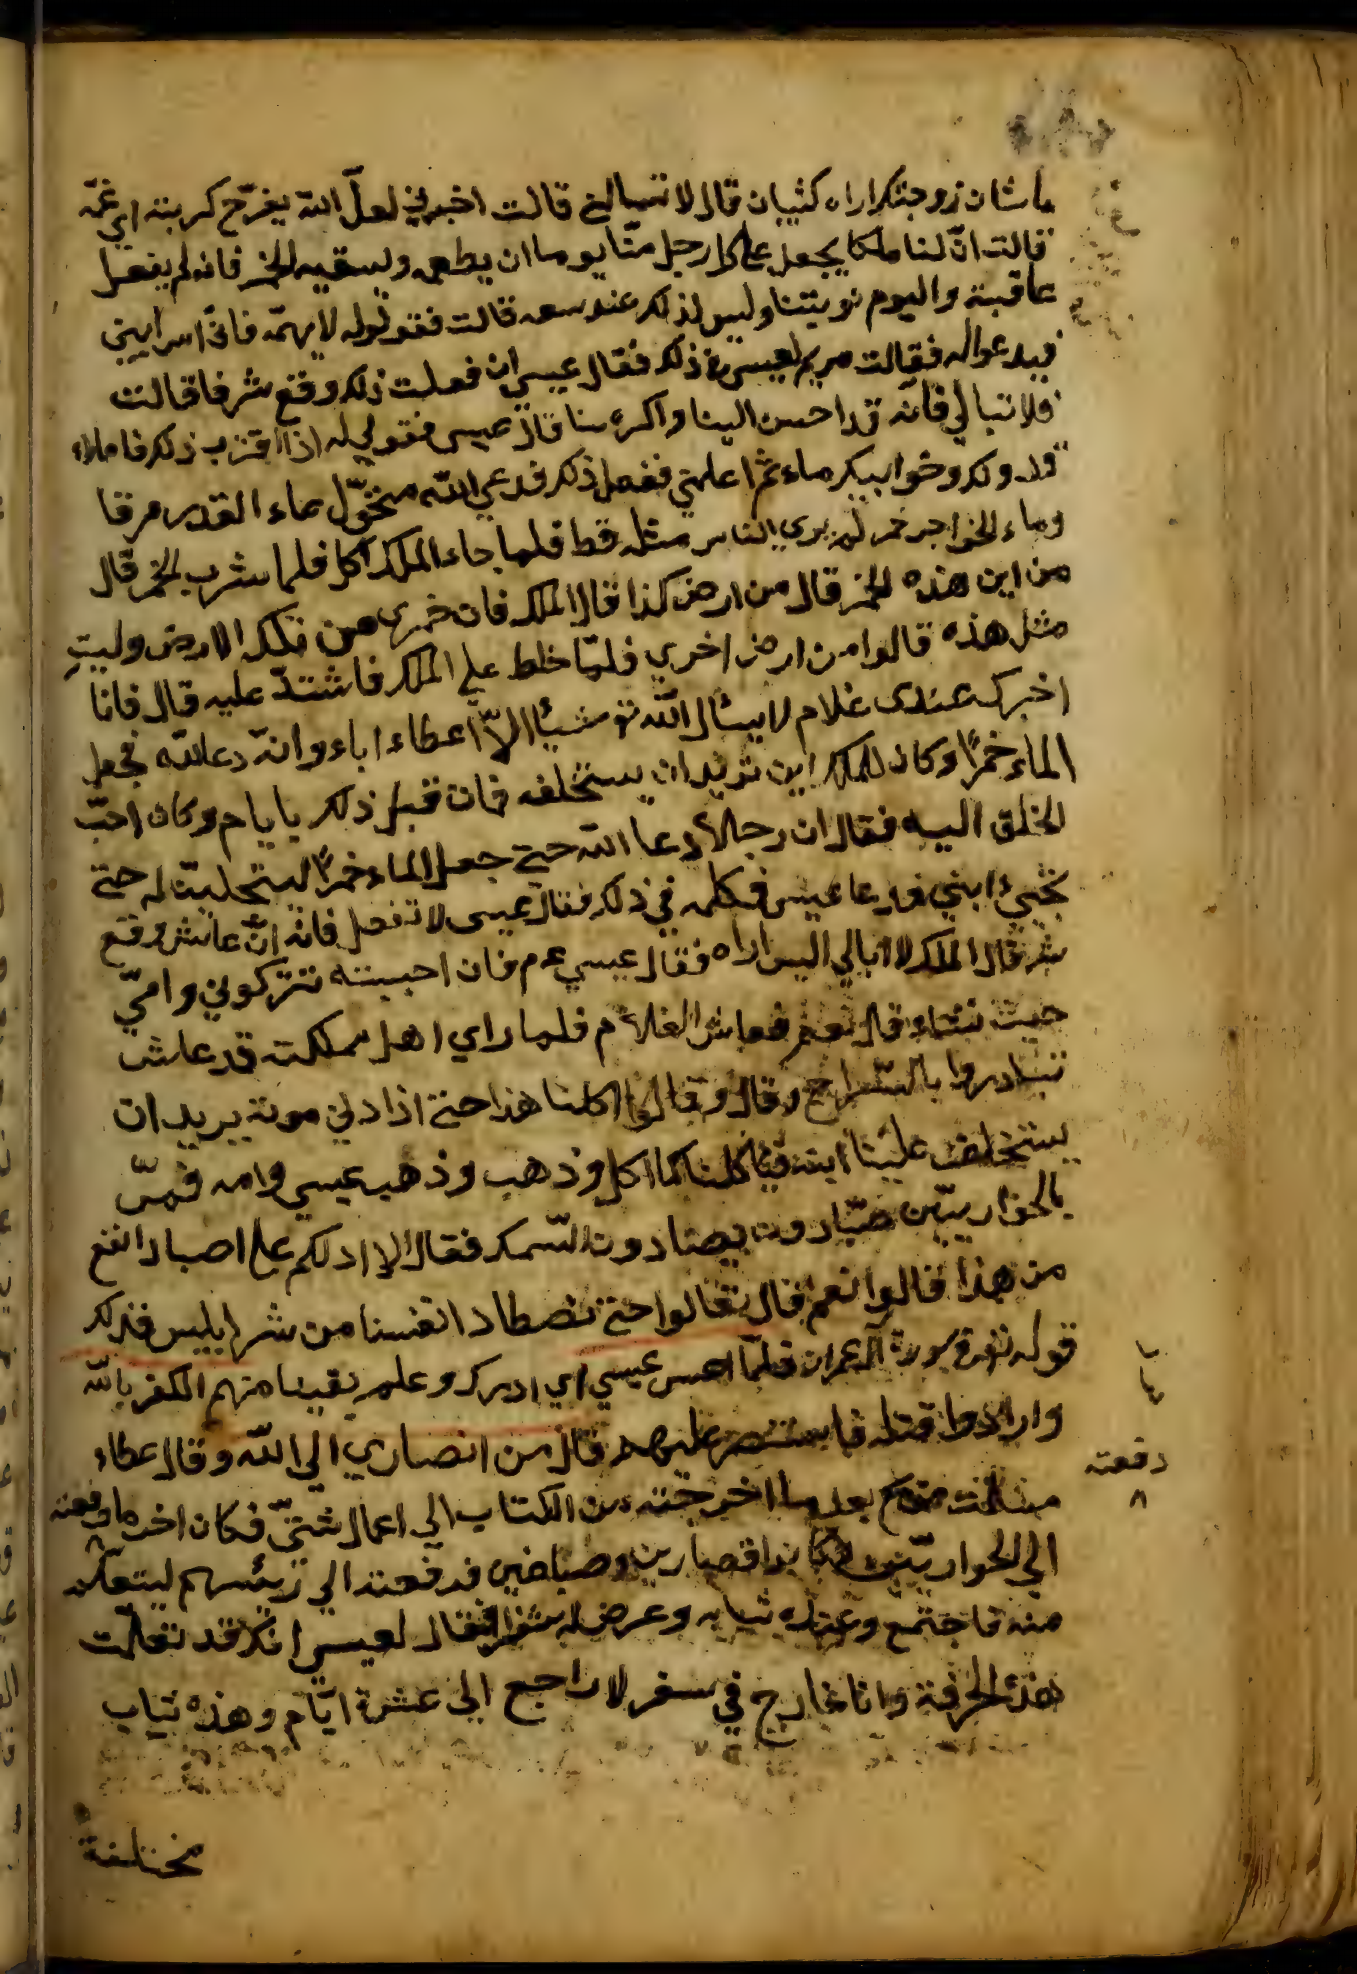 ما شان زوجتك اراه كئيبان قال لا تسالي قالت اخبرني لعل الله يفرّج كربته اي غمّه
قالت انّ لنا ملكا يجعل على كل رجل منّا يوما ان يطعمه ويسقيه الخمر فانه لم يفعل
عاقبة واليوم نوبتنا وليس لذلك عند سعه قالت فقولوله لا يهمّه فانّي آمر ابني
فيدعواله فقالت مريم لعيسى في ذلك فقال عيسى ان فعلت ذلك وقع شر فا قالت
فلا تبالي فانّه قد احسن الينا واكرمنا قال عيسى فقولي له اذا اقترب ذلك فاملاء
قدورك وخوابيك ماء ثم اعلمني ففعل ذلك فدعى الله فتحوّل ماء القدر مرقا
وماء الخوابي خمر لم يرى الناس مثله قط فلما جاء الملك اكل فلما شرب الخمر قال
من اين هذه الخمر قال من ارض كذا قال الملك فان خمري من تلك الارض وليت
مثل هذه قالوا من ارض اخري فلمّا خلط على الملك فاشتدّ عليه قال فانا
اخبرك عندى غلام لا يسأل الله تع شيئا الاّ اعطاه اياه وانه دعا الله فجعل
الماء خمرًا وكان للملك ابن يريد ان يستخلفه فمات قبل ذلك بايام وكان احبّ
الخلق اليه فقال ان رجلا دعا الله حتى جعل الماء خمرًا ليستجلبنّ له حتى
يحيئ ابني فدعا عيسى فكلمه في ذلك فقال عيسى لا تفعل فانه انّ عاش وقع
شر قال الملك لا ابالي اليس اراه فقال عيسي ع م فان احييته تتركوني وامّي
حيث نشاء قال نعم فعاش الغلام فلما راي اهل مملكته قد عاش
تبادروا بالسّلاح وقال وقالوا اكلنا هذا حتى اذا دنى موته يريد ان
يستخلف علينا ابنه فيأكلنا كما اكل وذهب وذهب عيسي وامه فمرّ
بالحواريّين صيّادون يصتادون السّمك فقال الا ادلكم على اصياد انفع
من هذا قالوا نعم قال تعالوا حتى نصطاد انفسنا من شر ابليس فذلك
قوله تع في سورة آل عمران فلمّا احس عيسي اي ادرك وعلم يقينا منهم الكفر بالله
وارادوا قتله فاستنصر عليهم قال من انصاري الي الله وقال عطاء
سلمت مريم بعد ما اخرجته من الكتاب الي اعمال شتّى فكان اخر ما دفعته
دفعته
الي الحواريّين وكانوا قصارين وصباغين فدفعته الي رئيسهم ليتعلّم
منه فاجتمع وعنده ثيابه وعرض له سفر فقال لعيسى انك قد تعلّمت
هذه الحرفة وانا خارج في سفر لا راجع الى عشرة ايّام وهذه ثياب
مختلفة